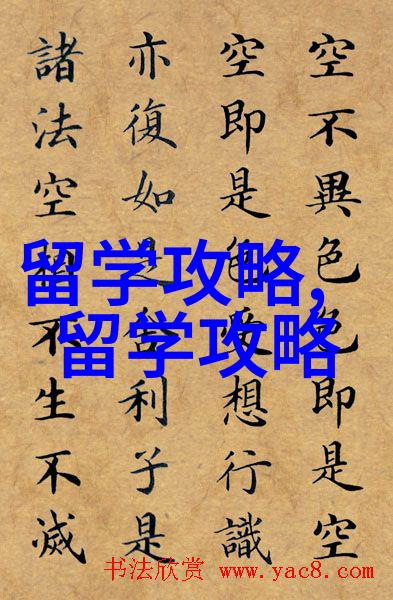 空不異色色即是空
空即是色受想行識
亦復如是舍利子是
諸法空相不生不滅
留学攻略,
留学攻略
书法欣赏 www.yac8.com